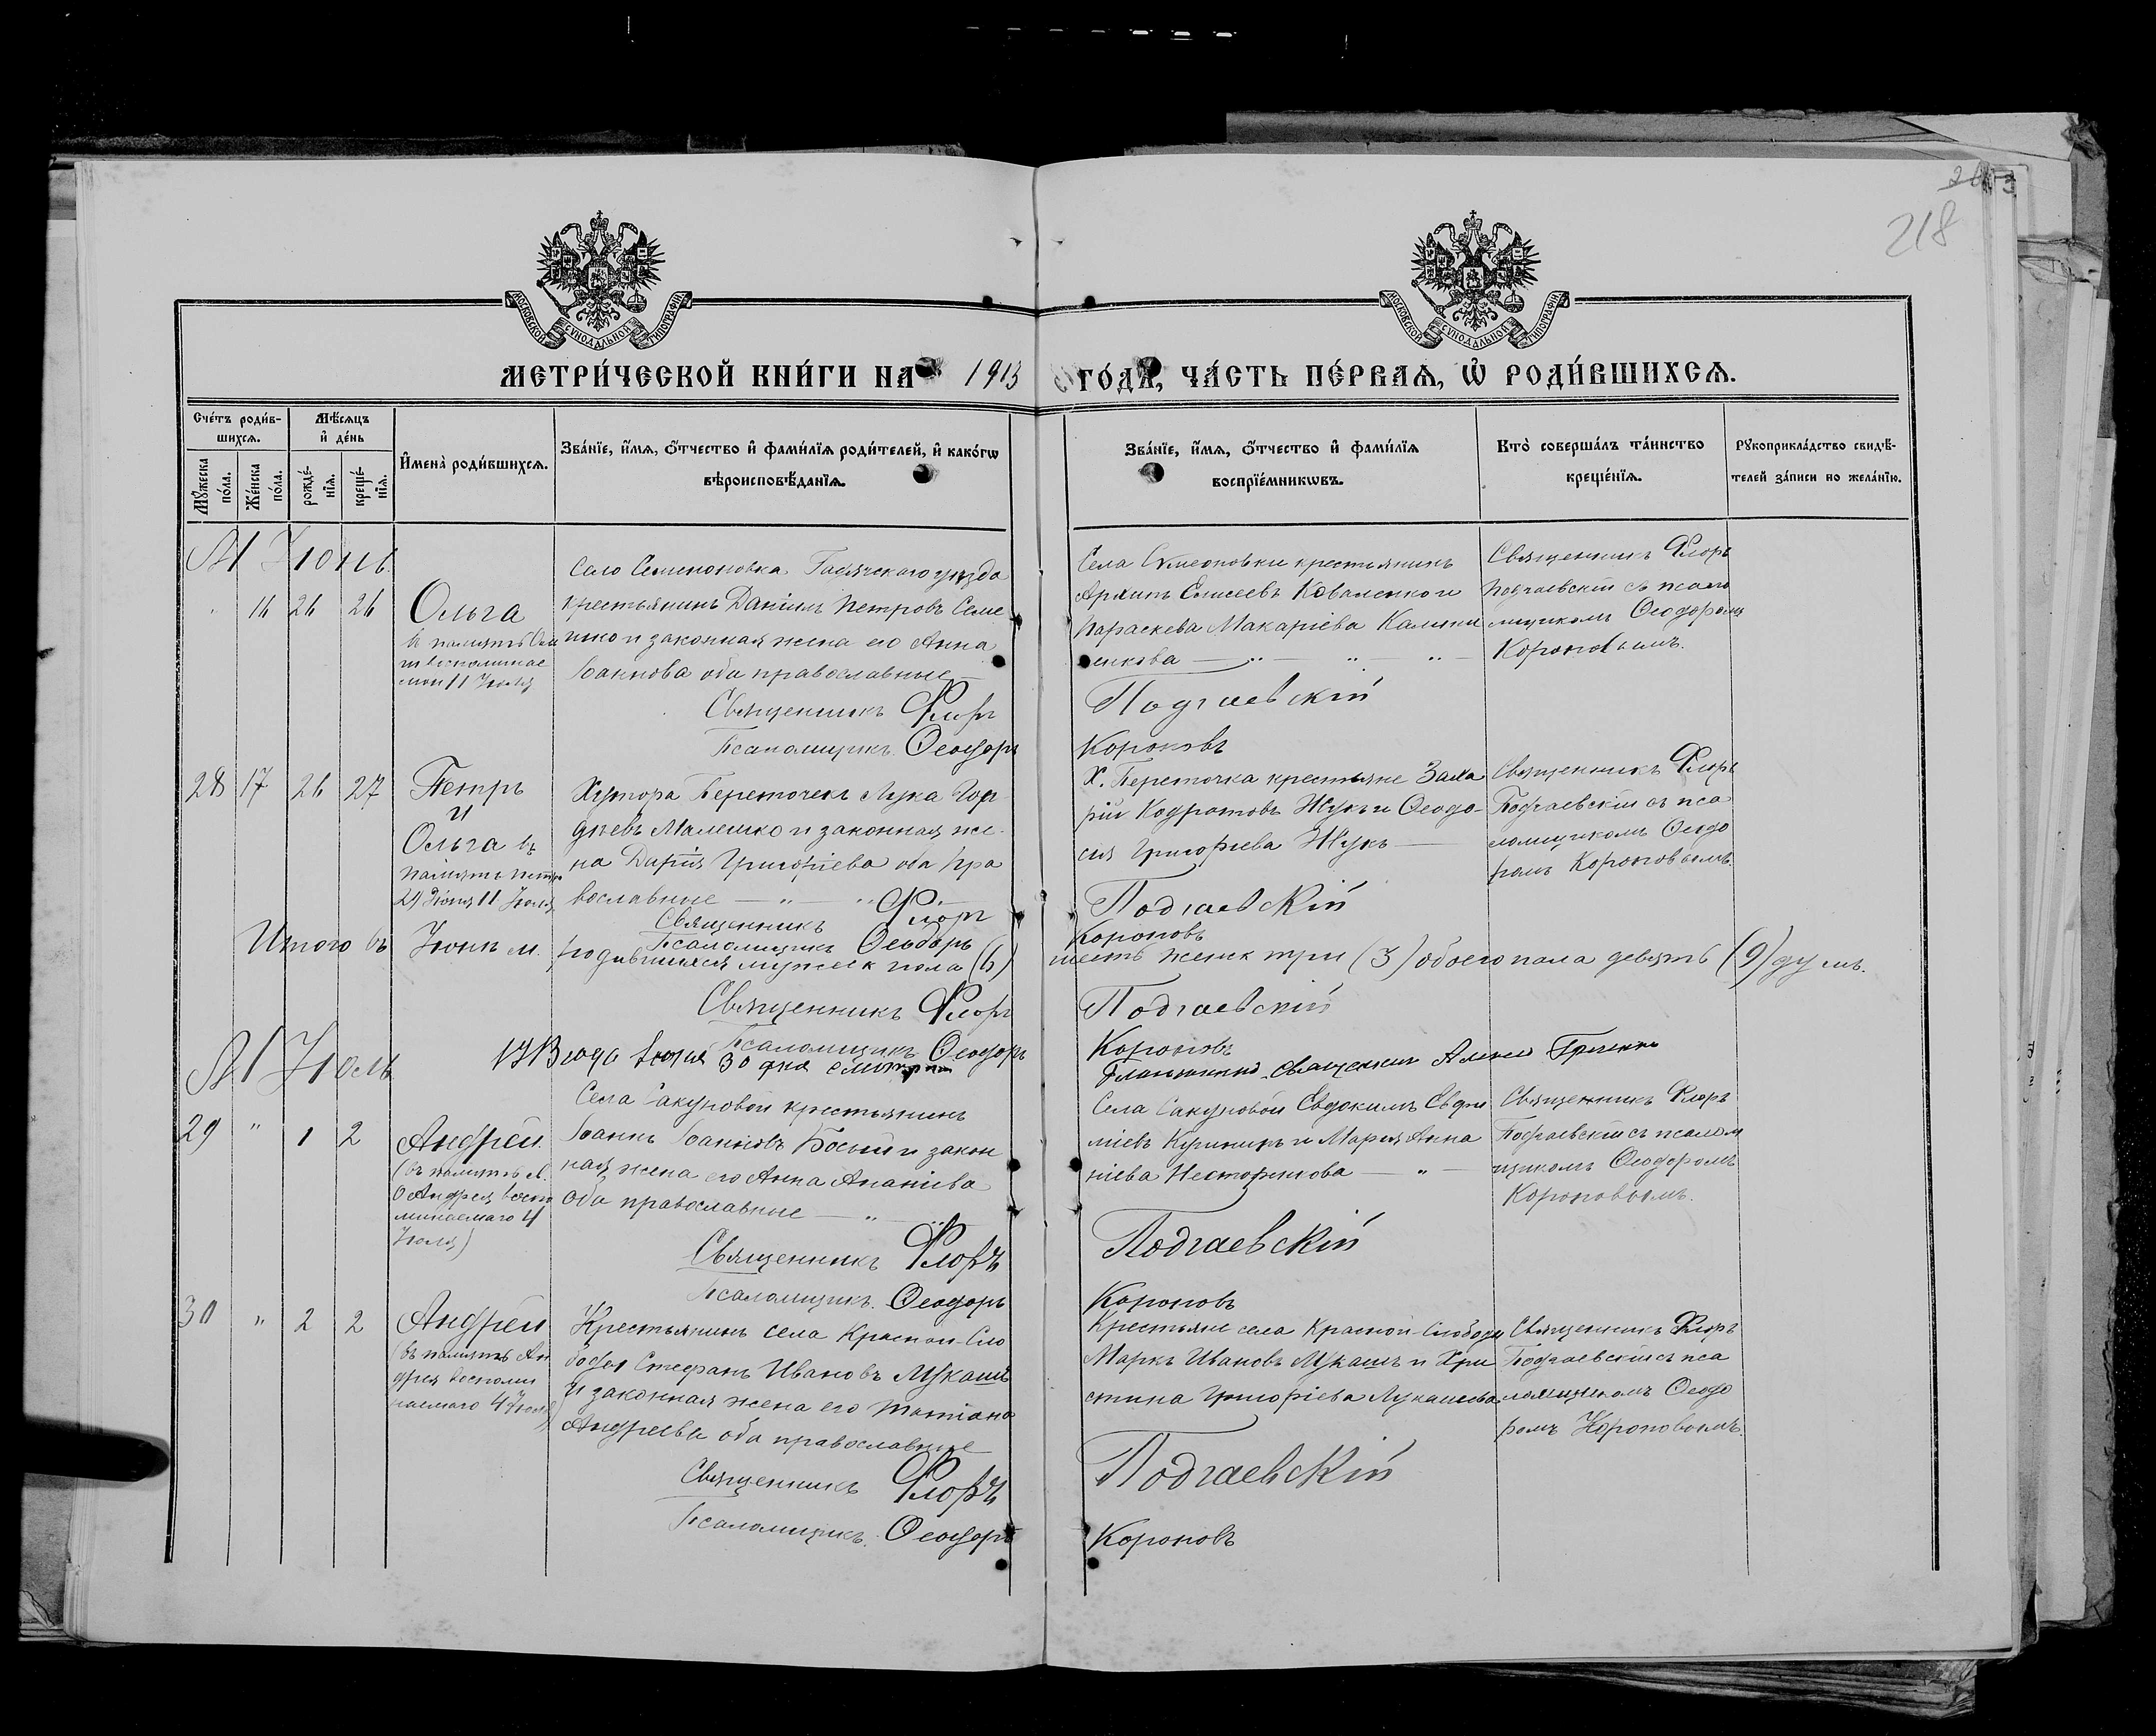 218
МОСКОВСКОЙ СУНОДАЛЬНОЙ ТИПОГРАФІИ
МОСКОВСКОЙ СУНОДАЛЬНОЙ ТИПОГРАФІИ
МЕТРИ́ЧЕСКОЙ КНИ́ГИ НА 1913 ГО́ДА, ЧА́СТЬ ПЕ́РВАЯ, Ѡ РОДИ́ВШИХСЯ.
Сче́тъ роди́в-
шихся.
Мѣ́сяцъ
и де́нь
Му́жеска
по́ла.
Же́нска
по́ла.
рожде́-
нїя.
креще́-
нїя.
И҆мена̀ роди́вшихся.
Зва́нїе, и҆́мя, ѻ҆́тчество и҆ фами́лїя роди́телей, и҆ како́гѡ
вѣроисповѣ́данїя.
Зва́нїе, и҆́мя, ѻ҆́тчество и҆ фами́лїя
воспрїе́мникѡвъ.
Кто̀ соверша́лъ та́инство
креще́нїя.
Рукоприкла́дство свидѣ́-
телей за́писи по жела́нїю.
М Іюнь
16 26 26
Ольга
воспоминае
мой 11 Іюля
Село Семеновка Гадячскаго уѣзда
крестьянинъ Даніилъ Петровъ Семе
нко и законная жена его Анна
Іоаннова оба православные
Священникъ Флоръ
Псаломщикъ Ѳеодоръ
Села крестьянинъ
Архипъ Елисеевъ Коваленко и
Параскева Макаріева Калини
ченкова
Подгаевскій
Короновъ
Священникъ Флоръ
Подгаевскій съ псало
мщикомъ Ѳеодоромъ
Короновымъ.
28 17 26 27
Петръ
и
Ольга въ
память Петра
29 Іюня 11 Іюля
Хутора Переточекъ Лука Гор
дѣевъ Малешко и законная же-
на Дарія Григоріева оба пра
вославные
Священникъ Флоръ
Псаломщикъ Ѳеодоръ
Х. Переточка крестьяне Заха
рій Кодратовъ Жукъ и Ѳеодо-
сія Григоріева Жукъ
Подгаевскій
Короновъ
Священникъ Флоръ
Подгаевскій съ пса
ломщикомъ Ѳеодо
ромъ Короновымъ.
Итого въ Іюнѣ м. родившихся мужеск пола (6) шесть женск три (3) обоего пола девять (9) душъ.
Священникъ Флоръ Подгаевскій
Псаломщикъ Ѳеодоръ Короновъ
1913 года Іюля 30 дня Священникъ
М Іюль
29 " 1 2
Андрей
(въ память св.
Андрея воспо
минаемаго 4
Іюля)
Села Сакуновой крестьянинъ
Іоаннъ Іоанновъ Босый и закон
ная жена его Анна Ананіева
оба православные
Священникъ Флоръ
Псаломщикъ Ѳеодоръ
Села Сакуновой Евдокимъ Евфи
міевъ и Марія Анна
ніева Несторикова
Подгаевскій
Короновъ
Священникъ Флоръ
Подгаевскій съ псалом
щикомъ Ѳеодоромъ
Короновымъ.
30 " 2 2
Андрей
(въ память Ан
дрея воспоми
наемаго 4 Іюля)
Крестьянинъ села Красной-Сло
боды Стефанъ Ивановъ Лукашъ
и законная жена его Татіана
Андреева оба православные
Священникъ Флоръ
Псаломщикъ Ѳеодоръ
Крестьяне села Красной-Слободы
Маркъ Ивановъ Лукашъ и Хри
стина Григоріева Лукашева
Подгаевскій
Короновъ
Священникъ Флоръ
Подгаевскій съ пса
ломщикомъ Ѳеодо
ромъ Короновымъ.